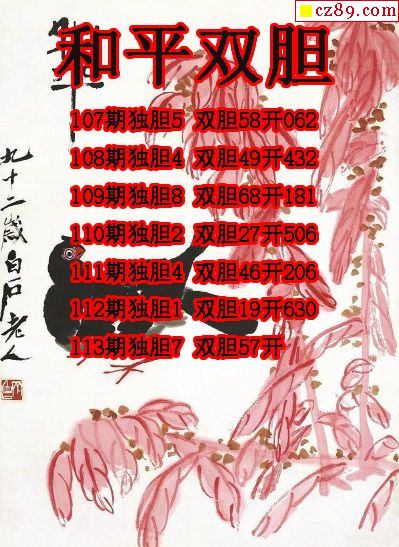 cz89.com
和平双胆
107期独胆5 双胆58开062
108期独胆4 双胆49开432
109期独胆8 双胆68开181
110期独胆2 双胆27开506
111期独胆4 双胆46开206
112期独胆1 双胆19开630
113期独胆7 双胆57开
九十二歲白石老人